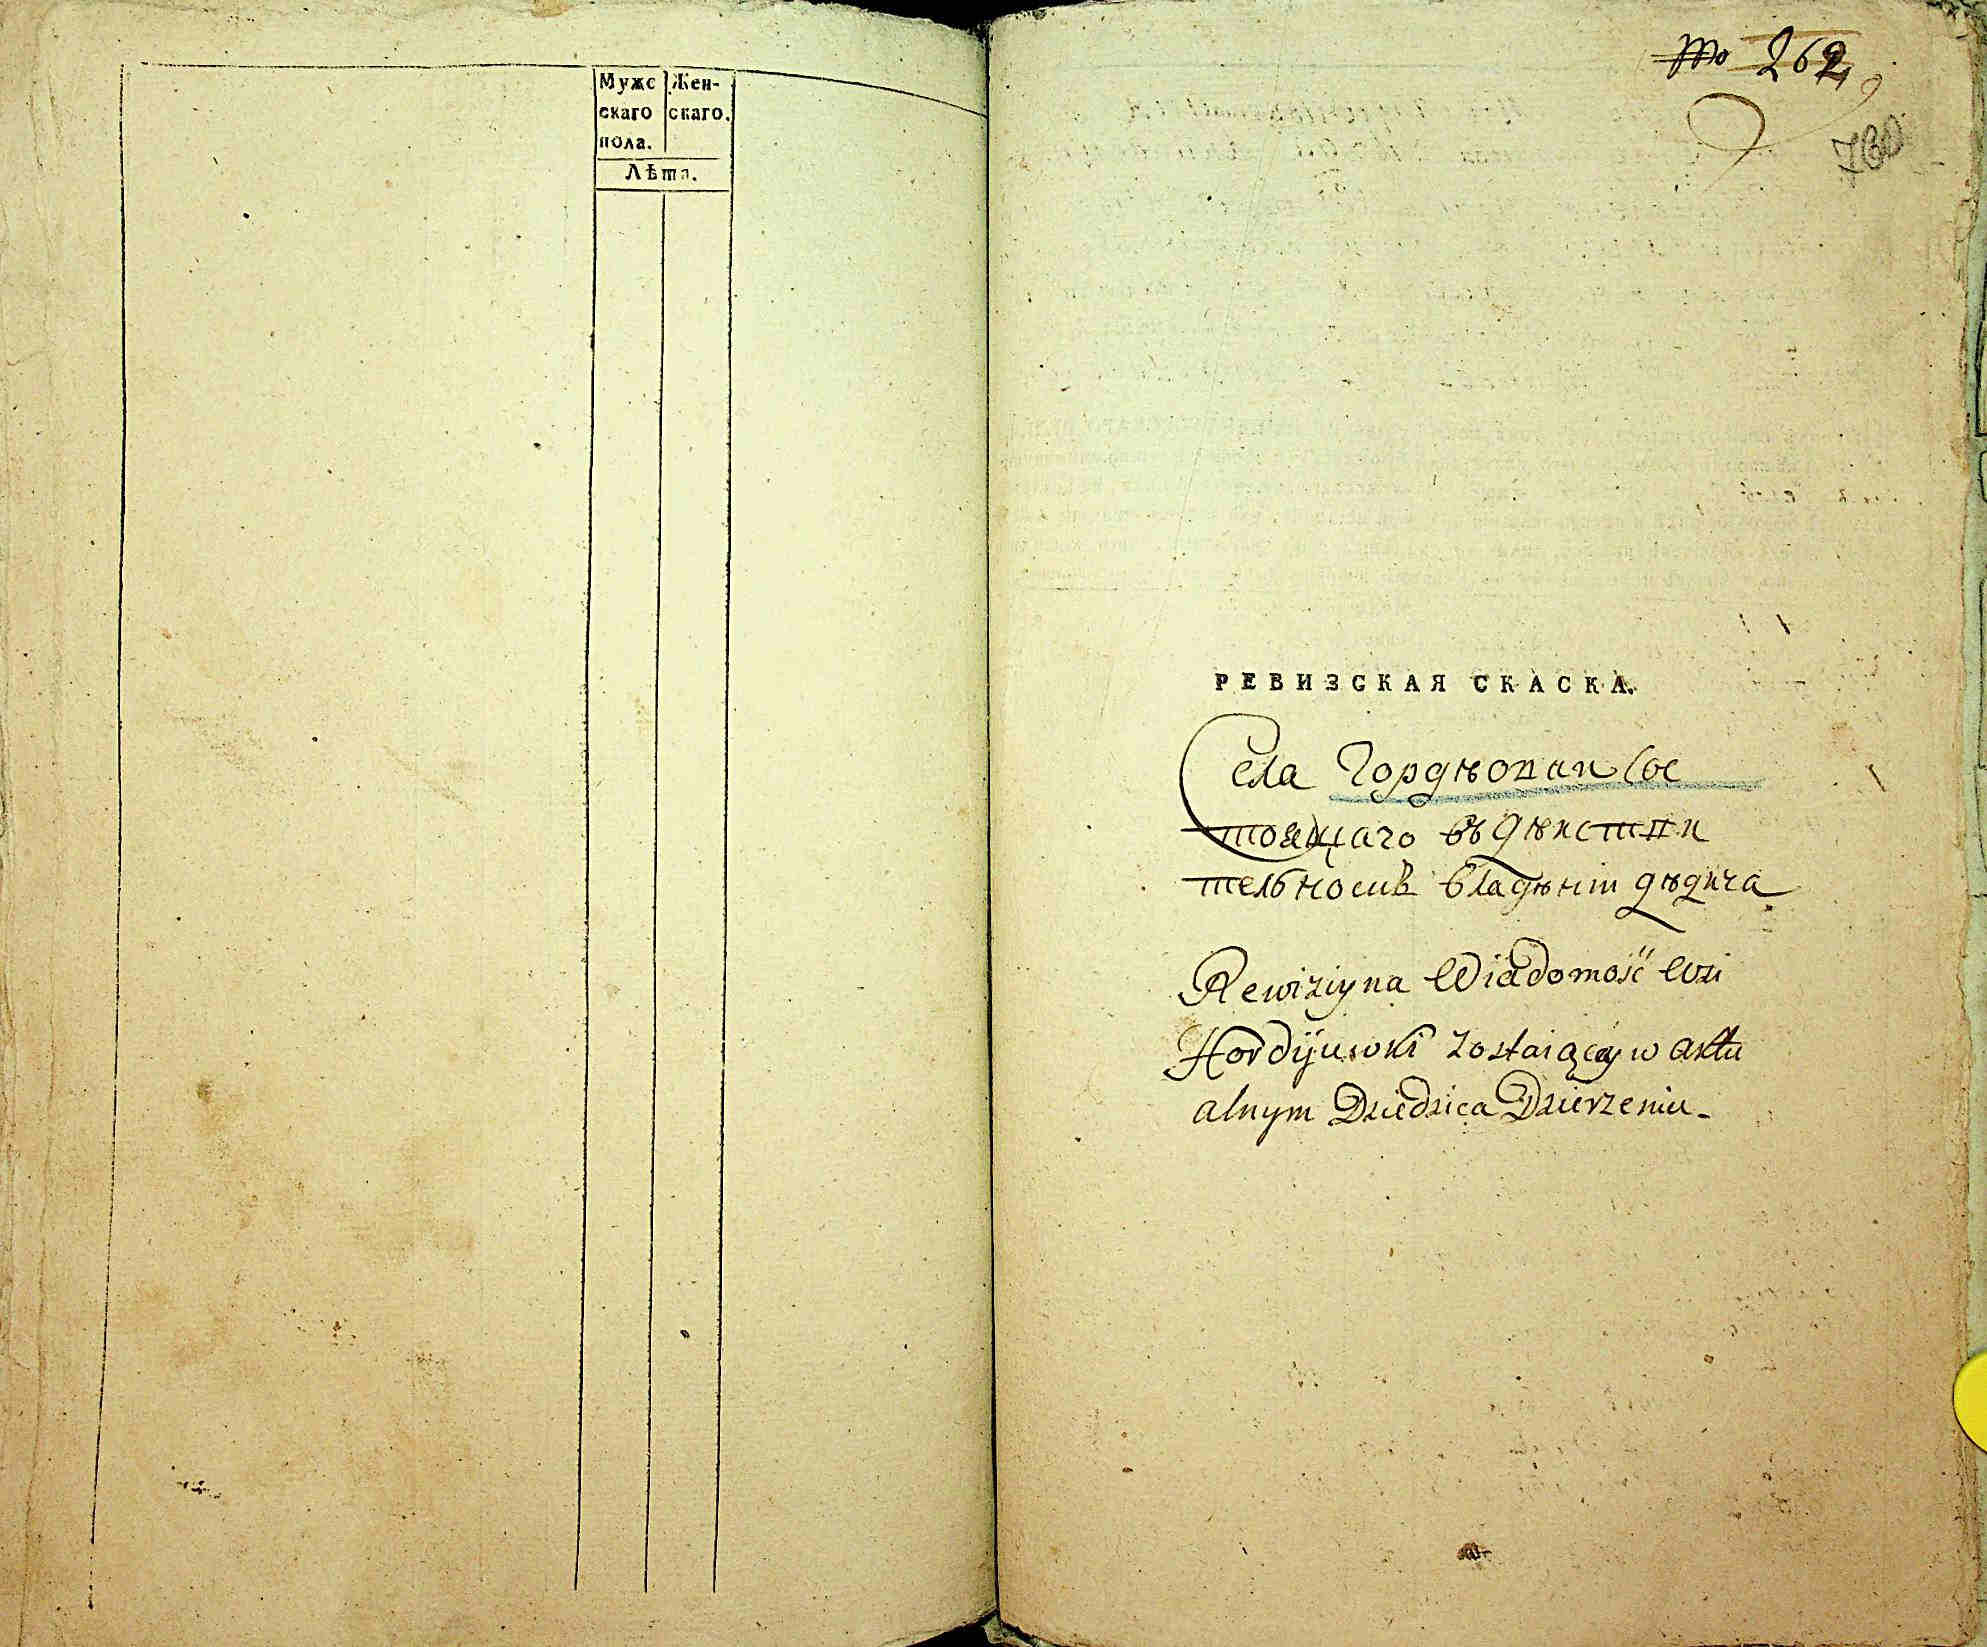 Мужс
скаго
пола.
Жен-
скаго.
Лѣта.
262
760
РЕВИЗСКАЯ СКАСКА.
Села Гордѣовки Сос
тоящаго въ дѣистви
тельномъ владѣніи дѣдича
Rewiziyna Wiadomość Wsi
Hordijuwki zostaiącey w aktu
alnym Dziedzica Dzierzeniu.